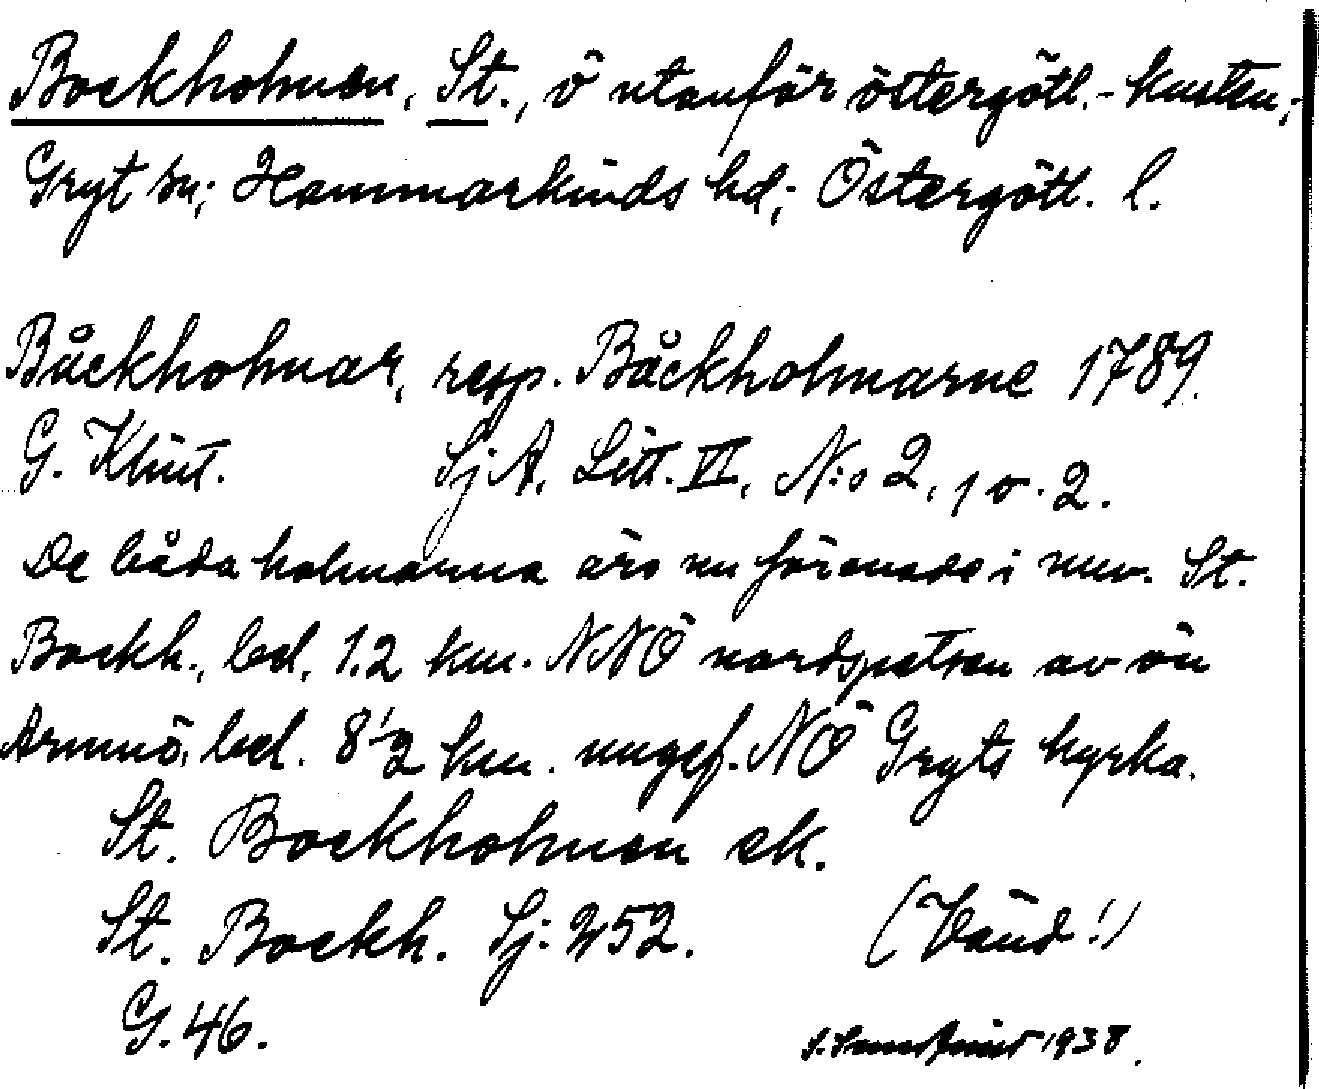 Bockholmen, St., ö utanför östergötl.-kusten,
Gryt sn; Hammarkinds hd; Östergötl. l.
Båckholmar, resp. Båckholmarne 1789.
G. Klint. SjA, Litt. VI, N:o 2, 1 o. 2.
De båda holmarna äro nu förenade i nuv. St.
Bockh., bel. 1.2 km. NNÖ nordspetsen av ön
Armnö, bel. 8 1/2 km. ungef. NÖ Gryts kyrka.
St. Bockholmen ek.
St. Bockh. Sj: 252. (Vänd!)
G. 46.
1938.